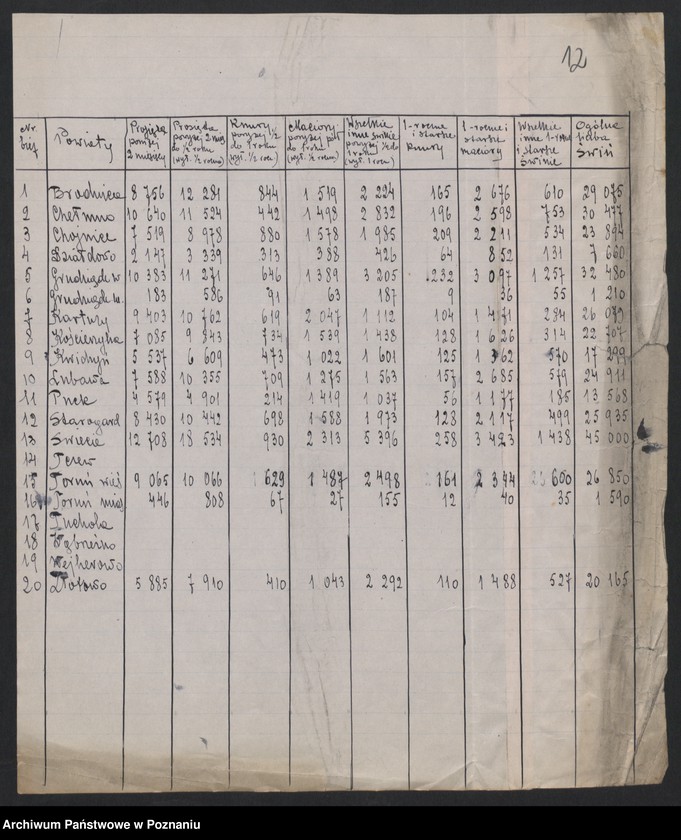 12
Nr. bież. Powiaty Prosięta poniżej 2 miesięcy Prosięta powyżej 2 mies. do ½ roku (wył. ½ roczn.) Knury powyżej ½ do 1 roku (wył. ½ rocz.) Maciory powyżej pół do 1 roku (wył. ½ roczn.) Wszelkie inne świnie powyżej ½ do 1 roku (wył. 1 rocz.) 1-roczne i starsze knury 1-roczne i starsze maciory Wszelkie inne 1-roczne i starsze świnie Ogólna liczba świń
1 Brodnica 8 756 12 281 844 1 519 2 224 165 2 676 610 29 075
2 Chełmno 10 640 11 524 442 1 498 2 832 196 2 598 753 30 477
3 Chojnice 7 519 8 978 880 1 578 1 985 209 2 211 534 23 894
4 Działdowo 2 147 3 339 313 388 426 64 852 131 7 660
5 Grudziądz w 10 383 11 271 646 1 389 3 205 232 3 097 1 257 32 480
6 Grudziądz m. 183 586 91 63 187 9 36 55 1 210
7 Kartuzy 9 403 10 762 619 2 047 1 112 104 1 471
8 Kościerzyna 7 085 9 843 734 1 539 1 438 128 1 626 314 22 707
9 Kwidzyn 5 537 6 609 473 1 022 1 601 125 1 362 570 17 299
10 Lubawa 7 588 10 355 709 1 275 1 563 157 2 685 579 24 911
11 Puck 4 579 4 901 214 1 419 1 037 56 1 177 185 13 568
12 Starogard 8 430 10 442 698 1 588 1 973 128 2 117 499 25 935
13 Świecie 12 708 18 534 930 2 313 5 396 258 3 423 1 438 45 000
14 Tczew
15 Toruń wieś 9 065 10 066 629 1 487 2 498 161 2 344 600 26 850
16 Toruń mia. 446 808 67 27 155 12 40 35 1 590
17 Tuchola
18 Wąbrzeźno
19 Wejherowo
20 Złotowo 5 885 7 910 410 1 043 2 292 110 1 488 527 20 165
Archiwum Państwowe w Poznaniu